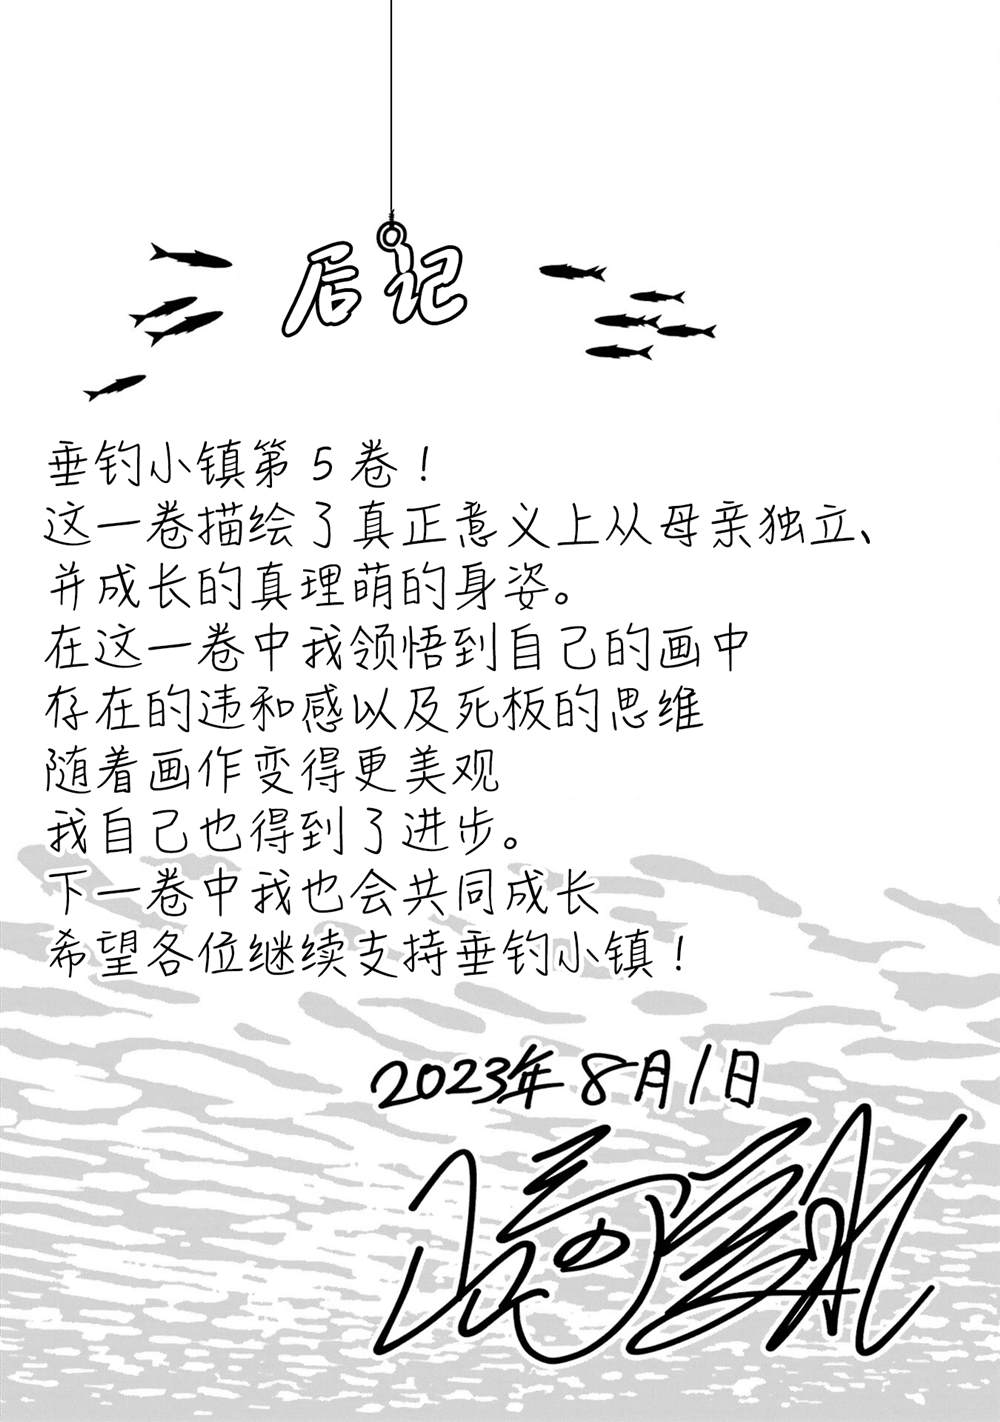 后记
垂钓小镇第5卷！
这一卷描绘了真正意义上从母亲独立、
并成长的真理萌的身姿。
在这一卷中我领悟到自己的画中
存在的违和感以及死板的思维
随着画作变得更美观
我自己也得到了进步。
下一卷中我也会共同成长
希望各位继续支持垂钓小镇！
2023年8月1日